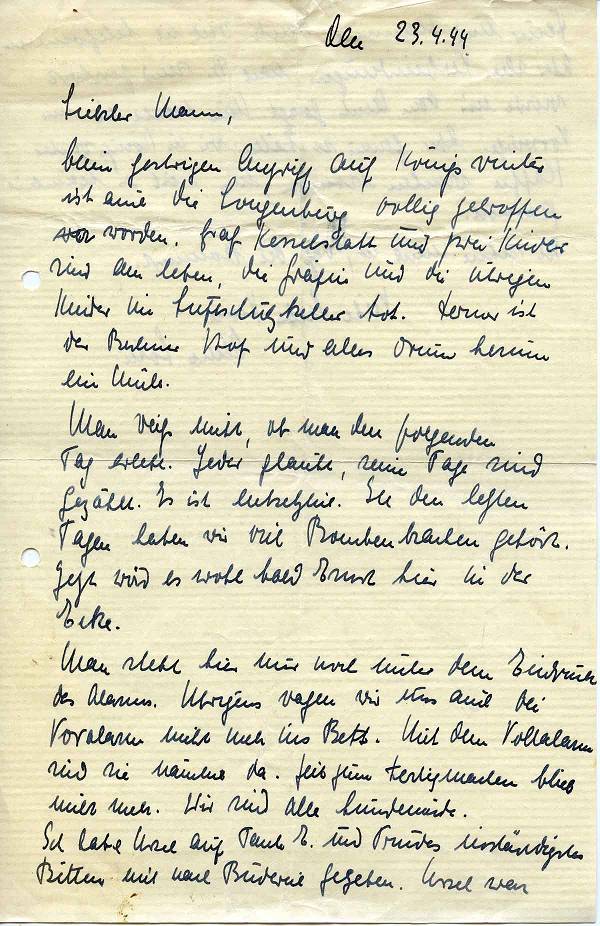 den 23.4.44
Liebster Mann,
beim gestrigen Angriff auf Königswinter
ist auch die Longenburg völlig getroffen
worden. Graf Kesselstatt und zwei Kinder
sind am leben, die Gräfin und die übrigen
Kinder im Luftschutzkeller tot. Ferner ist
der Berliner Hof und alles drum herum
ein
Man weiß nicht, ob man den folgenden
Tag erlebt. Jeder glaubt, seine Tage sind
gezählt. Es ist entsetzlich. In den letzten
Tagen haben wir viel Bomben krachen gehört.
Jetzt wird es wohl bald Ernst hier in der
Ecke.
Man steht hier nur noch unter dem Eindruck
des Alarms. Übrigens wagen wir uns auch bei
Voralarm nicht mehr ins Bett. Mit dem Vollalarm
sind sie nämlich da. Zeit zum Fertigmachen blieb
nicht mehr. Wir sind alle hundemüde.
Ich habe Ursel auf Tante E. und Trudes inständigstes
Bitten mit nach Büderich gegeben. Ursel war